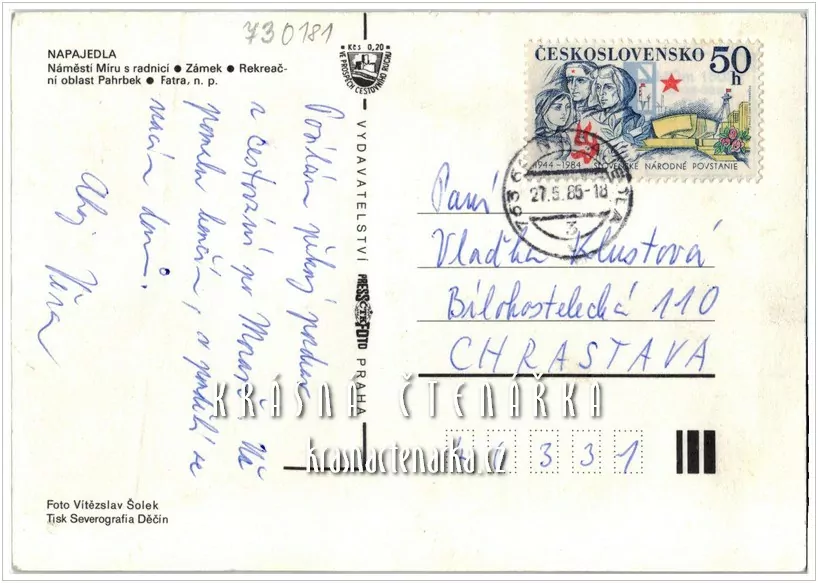 730181
NAPAJEDLA
Náměstí Míru s radnicí ● Zámek ● Rekreač-
ní oblast Pahrbek ● Fatra, n. p.
Kčs 0,20
VE PROSPĚCH CESTOVNÍHO RUCHU
ČESKOSLOVENSKO 50
h
1944-1984 SLOVENSKÉ NÁRODNÉ POVSTANIE
27.5.85-18
3
Posílám pěkný pozdrav
z cestování po Moravě. Už
pomalu končím, a podělí se
Ahoj Věra
VYDAVATELSTVÍ PRESSFOTO PRAHA
ČTK
Paní
Vlaďka Klustová
Bílokostelecká 110
CHRASTAVA
KRÁSNÁ ČTENÁŘKA
krasnactenarka.cz
46 331
Foto Vítězslav Šolek
Tisk Severografia Děčín